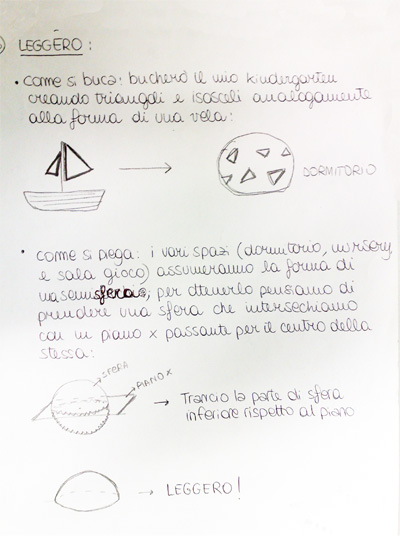 LEGGÉRO :
• come si buca: bucherò il mio kindergarten
creando triangoli e isosceli analogamente
alla forma di una vela:
→ DORMITORIO
• come si piega: i vari spazi (dormitorio, nursery
e sala gioco) assumeranno la forma di
una semisfera; per ottenerlo pensiamo di
prendere una sfera che intersechiamo
con un piano x passante per il centro della
stessa:
SFERA
PIANO X
→ Trancio la parte di sfera
inferiore rispetto al piano
→ LEGGERO!